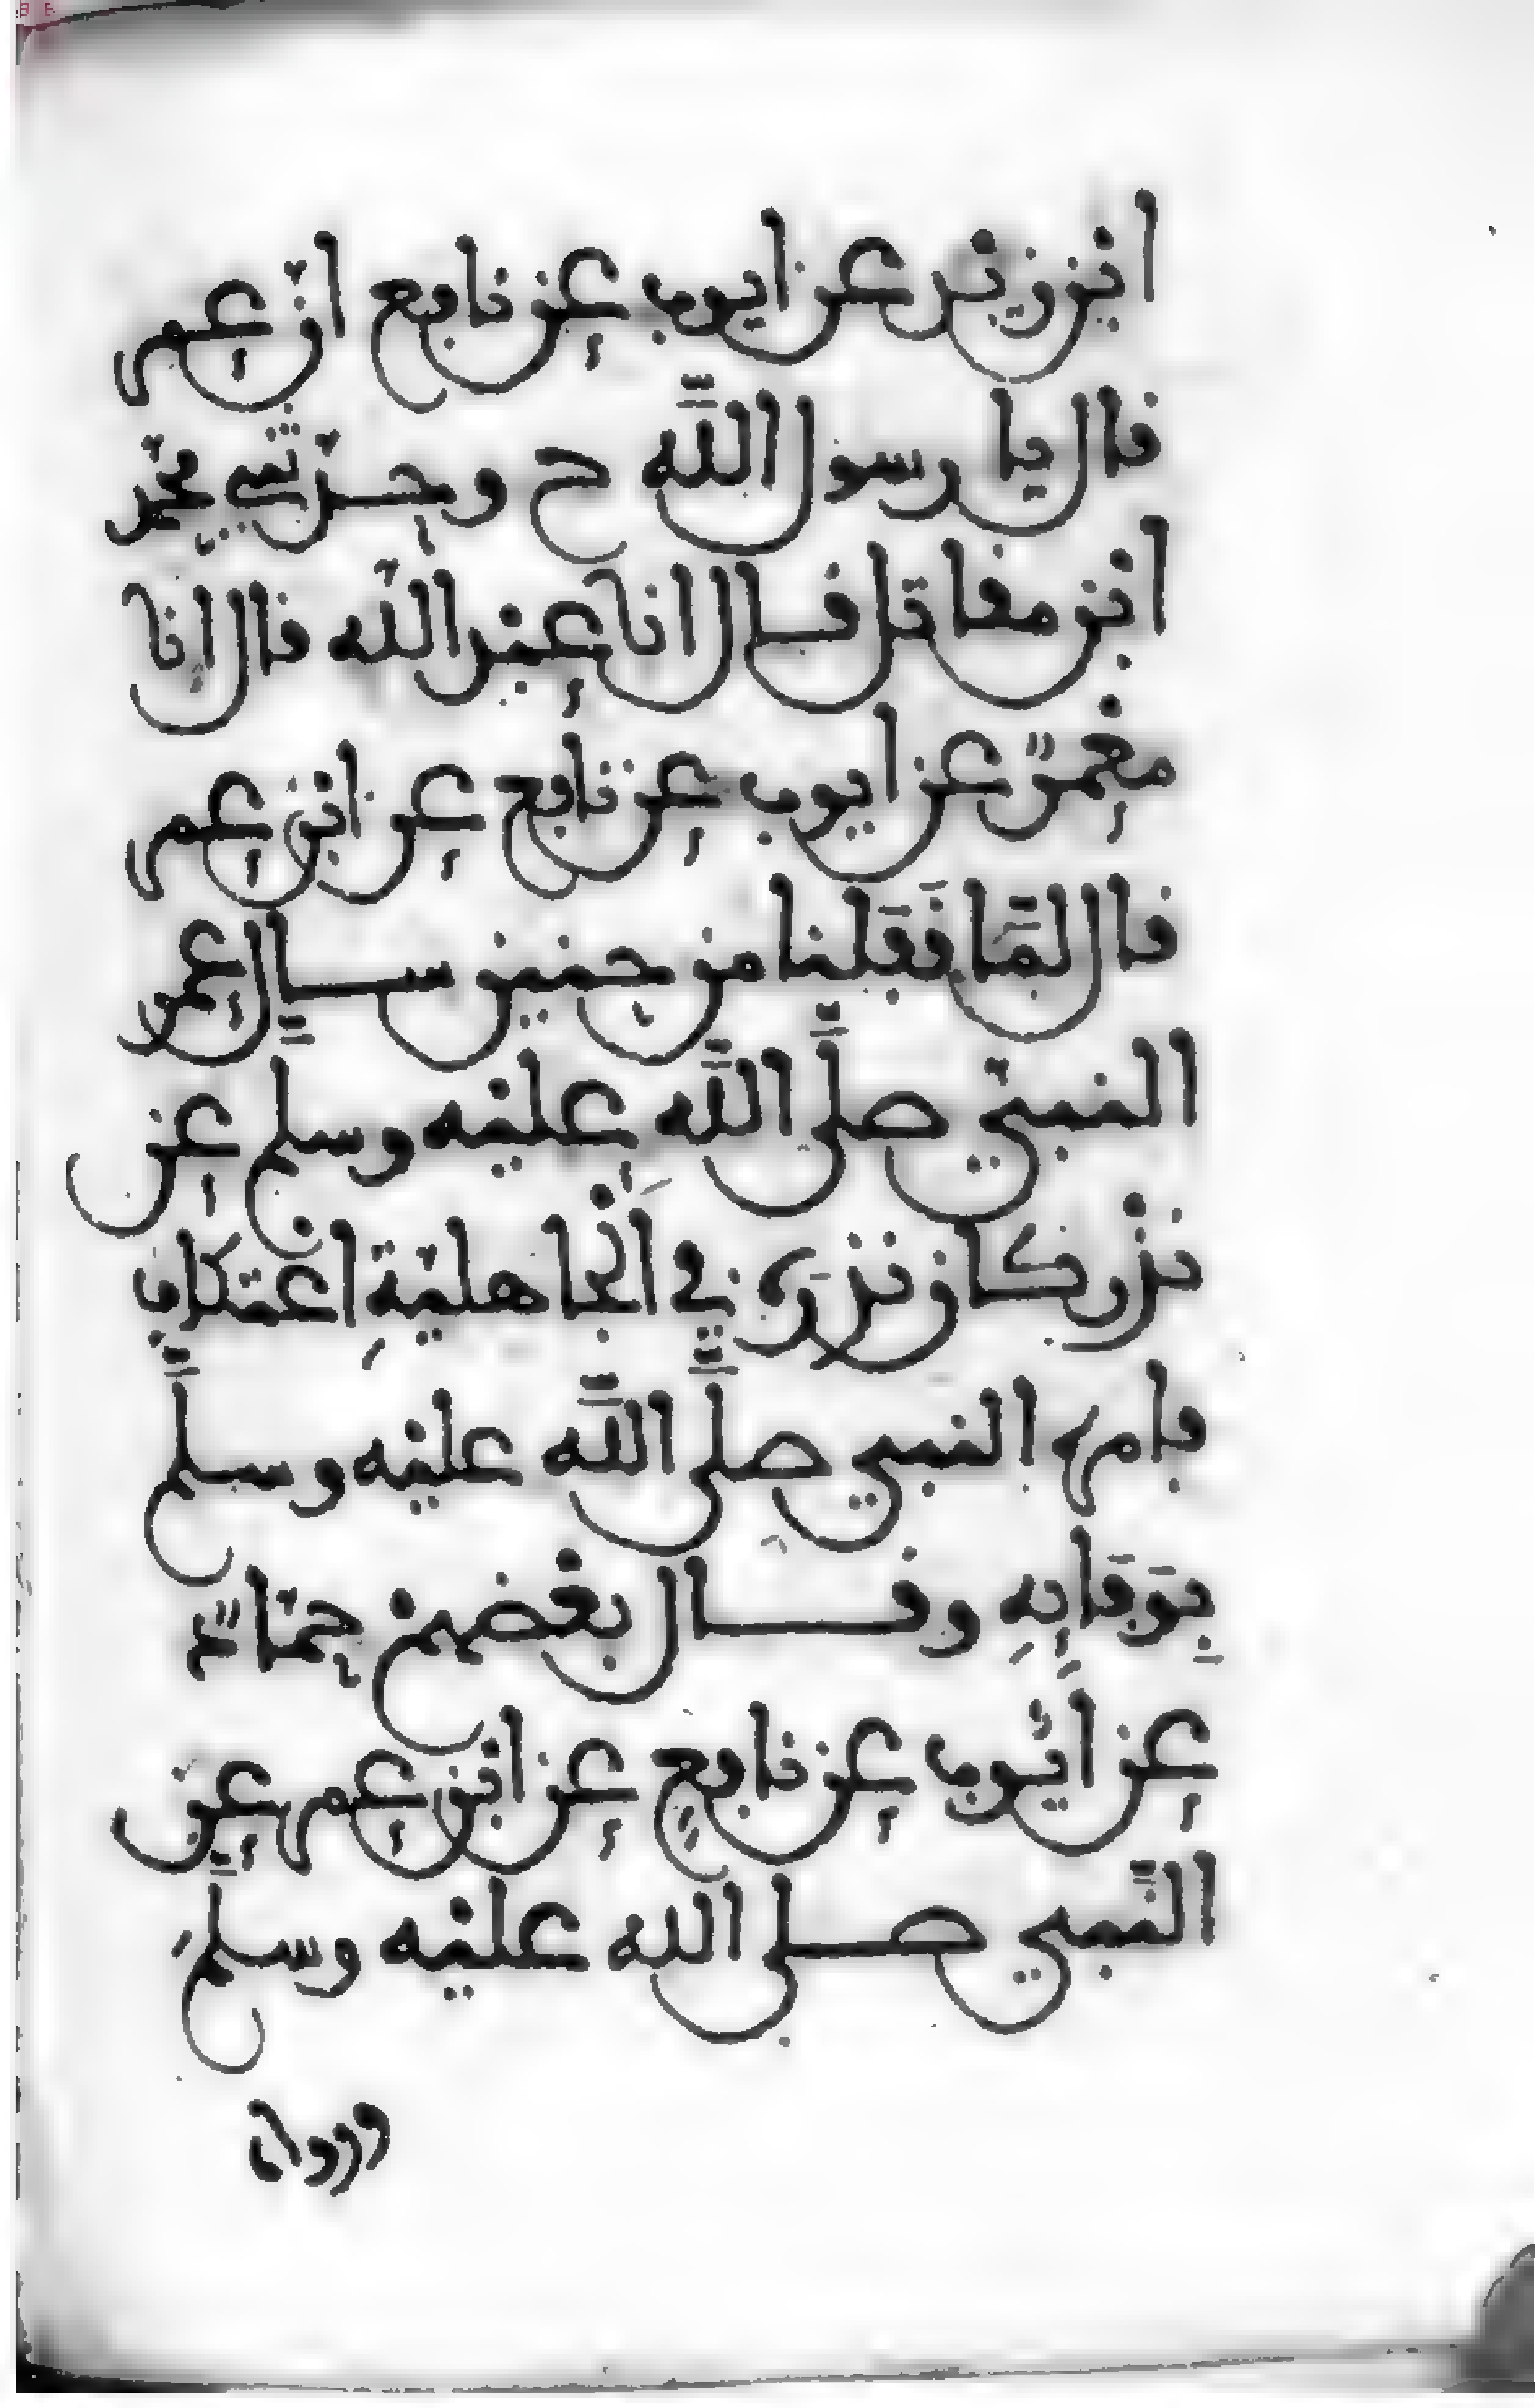 ابن زيد عن ايوب عن نافع ان عمر
قال يا رسول الله ح وحدثني محمد
ابن مقاتل قال انا عبد الله قال انا
معمرٌ عن ايوب عن نافع عن ابن عمر
قال لمَّا قَفَلنا من حنين سال عمر
النبي صلَّى الله عليه وسلم عن
نذر كان نذرَه في الجاهليةِ اعتكاف
فامره النبي صلَّى الله عليه وسلَّم
بِوَفَايِهِ وقال بعضهم حمّادٌ
عن أيوب عن نافعٍ عن ابن عمر عن
النَّبي صلى الله عليه وسلَّم
ورواه